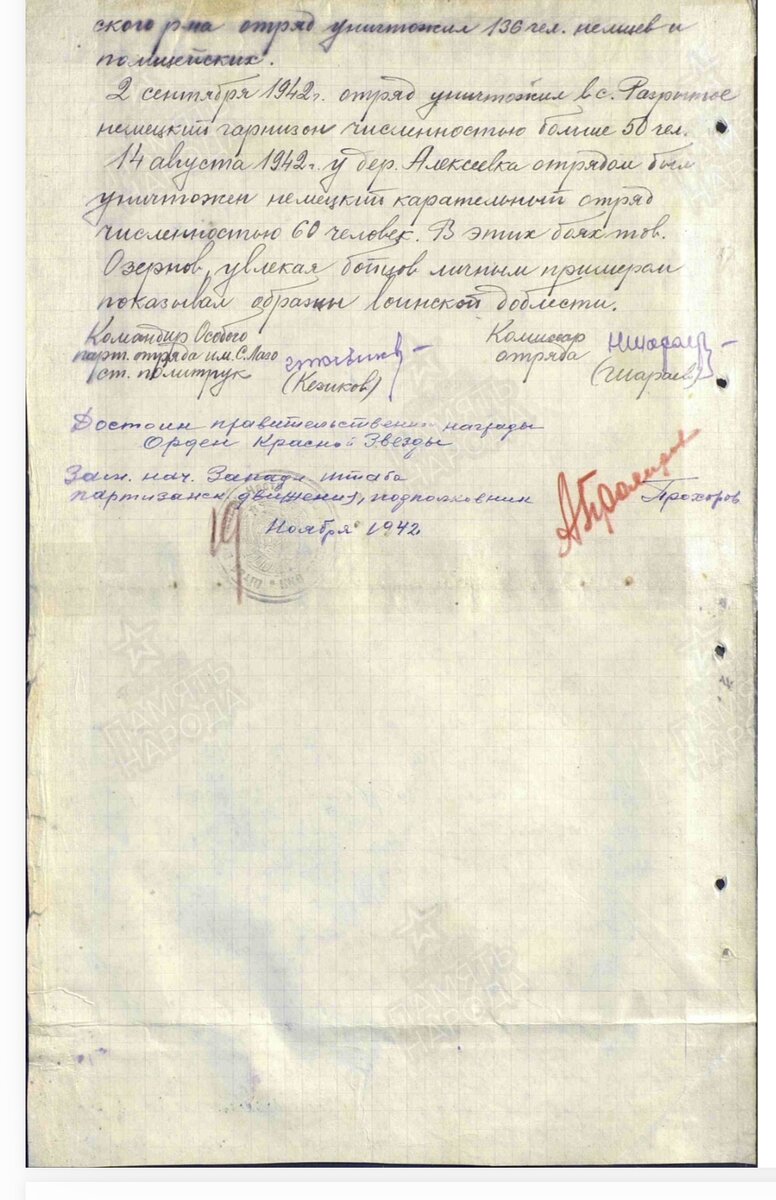 ского р-на отряд уничтожил 136 чел. немцев и
полицейских.
2 сентября 1942г. отряд уничтожил в с. Разрытое
немецкий гарнизон численностью больше 50 чел.
14 августа 1942г. у дер. Алексеевка отрядом был
уничтожен немецкий карательный отряд
численностью 60 человек. В этих боях тов.
Озернов, увлекая бойцов личным примером
показывал образцы воинской доблести.
Командир Особого
парт. отряда им. С. Лазо
ст. политрук
(Кезиков)
Комиссар
отряда
(Шараев)
Достоин правительственной награды
Орден Красной Звезды
Зам. нач. Западн. штаба
партизанск. движения, подполковник Прохоров
19 Ноября 1942
ПАМЯТЬ
НАРОДА
ПАМЯТЬ
НАРОДА